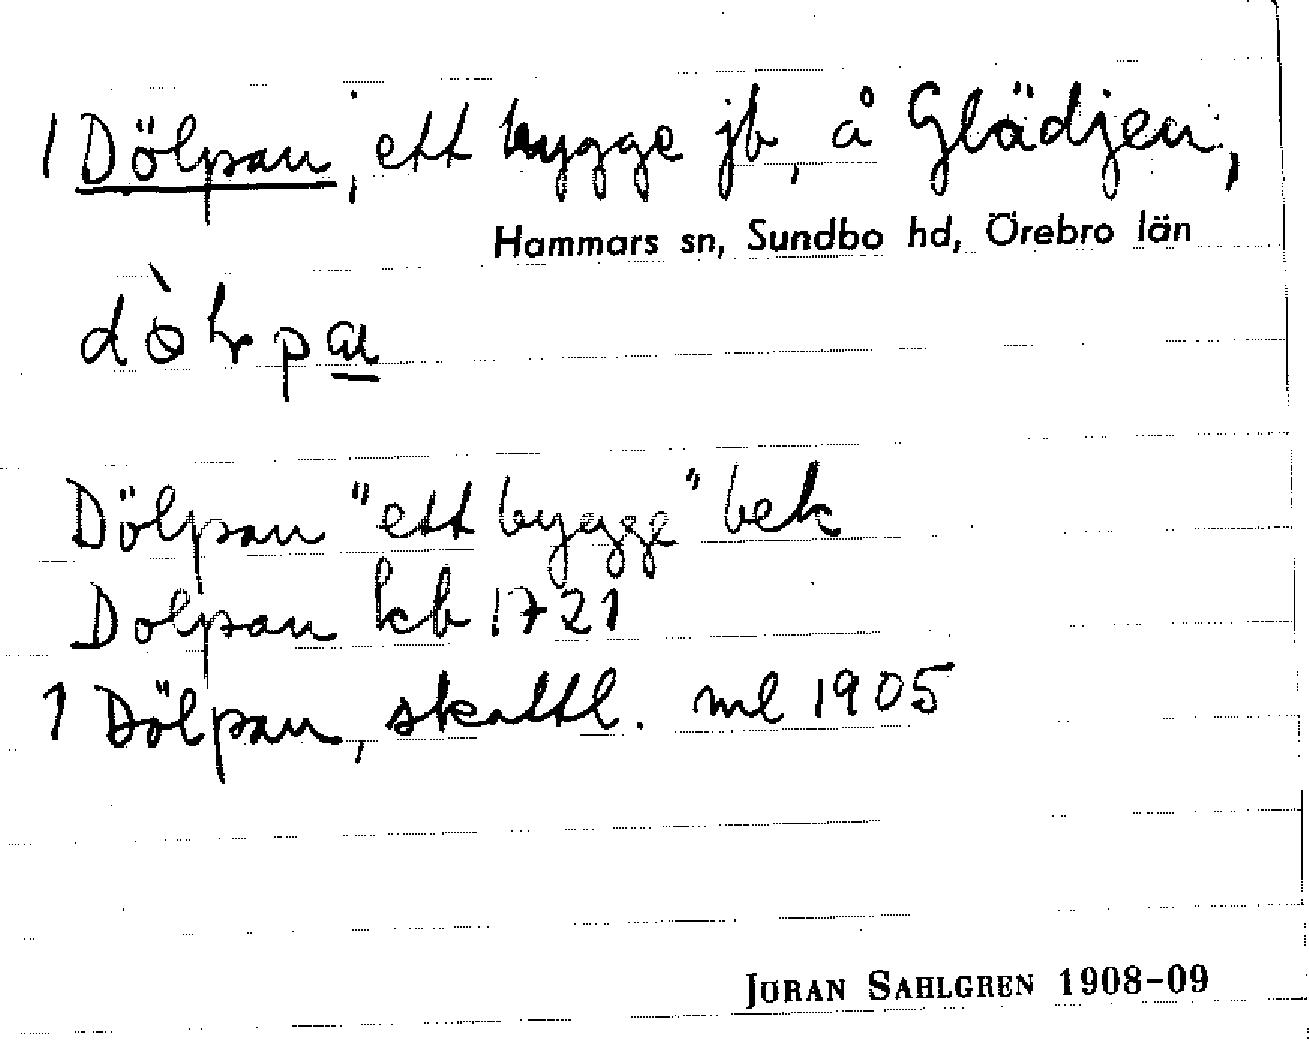 1 Dölpan, ett bygge jb, å Glädjen,
Hammars sn, Sundbo hd, Örebro län
Dölpan "ett bygge" bek
Dolpan kb 1721
1 Dölpan, skattl. ml 1905
JÖRAN SAHLGREN 1908-09